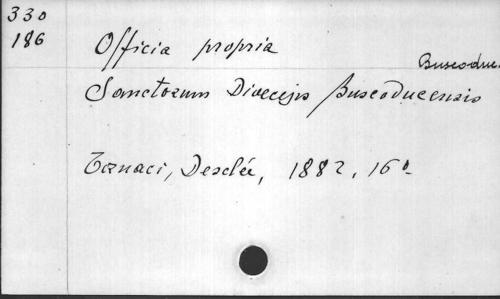 330
186
Officia propria
Buscoduc.
Sanctorum Diocesis Buscoducensis
Tornaci, Desclée, 1882, 16°